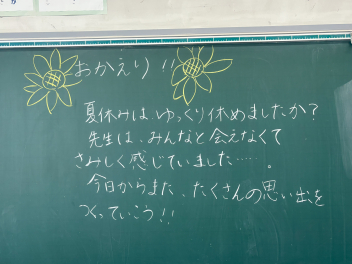 おかえり!!
夏休みは、ゆっくり休めましたか?
先生は、みんなと会えなくて
さみしく感じていました……。
今日からまた、たくさんの思い出を
つくっていこう!!